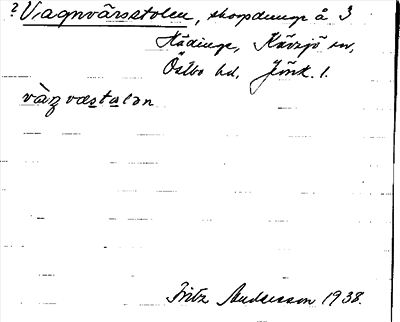 ? Vagnvärsstolen, skogsdunge å 3
Hädinge, Kävsjö sn,
Östbo hd. Jönk. l.
Fritz Andersson 1938.